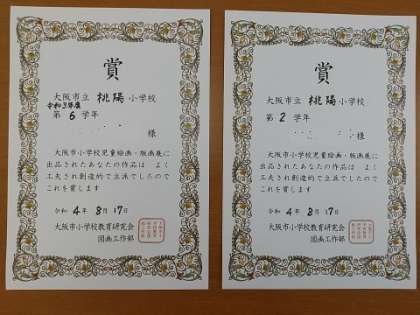 賞
大阪市立 桃陽 小学校
令和3年度
第 6 学年
様
大阪市小学校児童絵画・版画展に
出品されたあなたの作品は よく
工夫され創造的で立派でしたので
これを賞します
令和 4 年 8 月 17 日
大阪市小学校教育研究会
図画工作部
賞
大阪市立 桃陽 小学校
第 2 学年
様
大阪市小学校児童絵画・版画展に
出品されたあなたの作品は よく
工夫され創造的で立派でしたので
これを賞します
令和 4 年 8 月 17 日
大阪市小学校教育研究会
図画工作部